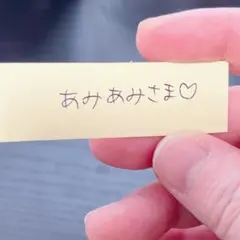 あみあみさま♡